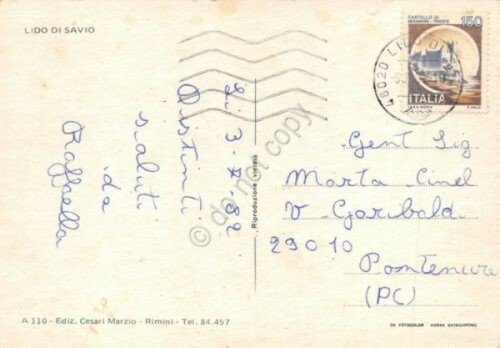 LIDO DI SAVIO
150
CASTELLO DI
MIRAMARE - TRIESTE
ITALIA
48020 LIDO DI
Li 3-8-82
Distinti
saluti
da
Raffaella
Riproduzione vietata
do not copy
Gent Sig
Marta Cinel
V Garibald
29010
Pontenure
(PC)
A 110 - Ediz. Cesari Marzio - Rimini - Tel. 84.457
DA FOTOCOLOR KODAK EKTACHROME